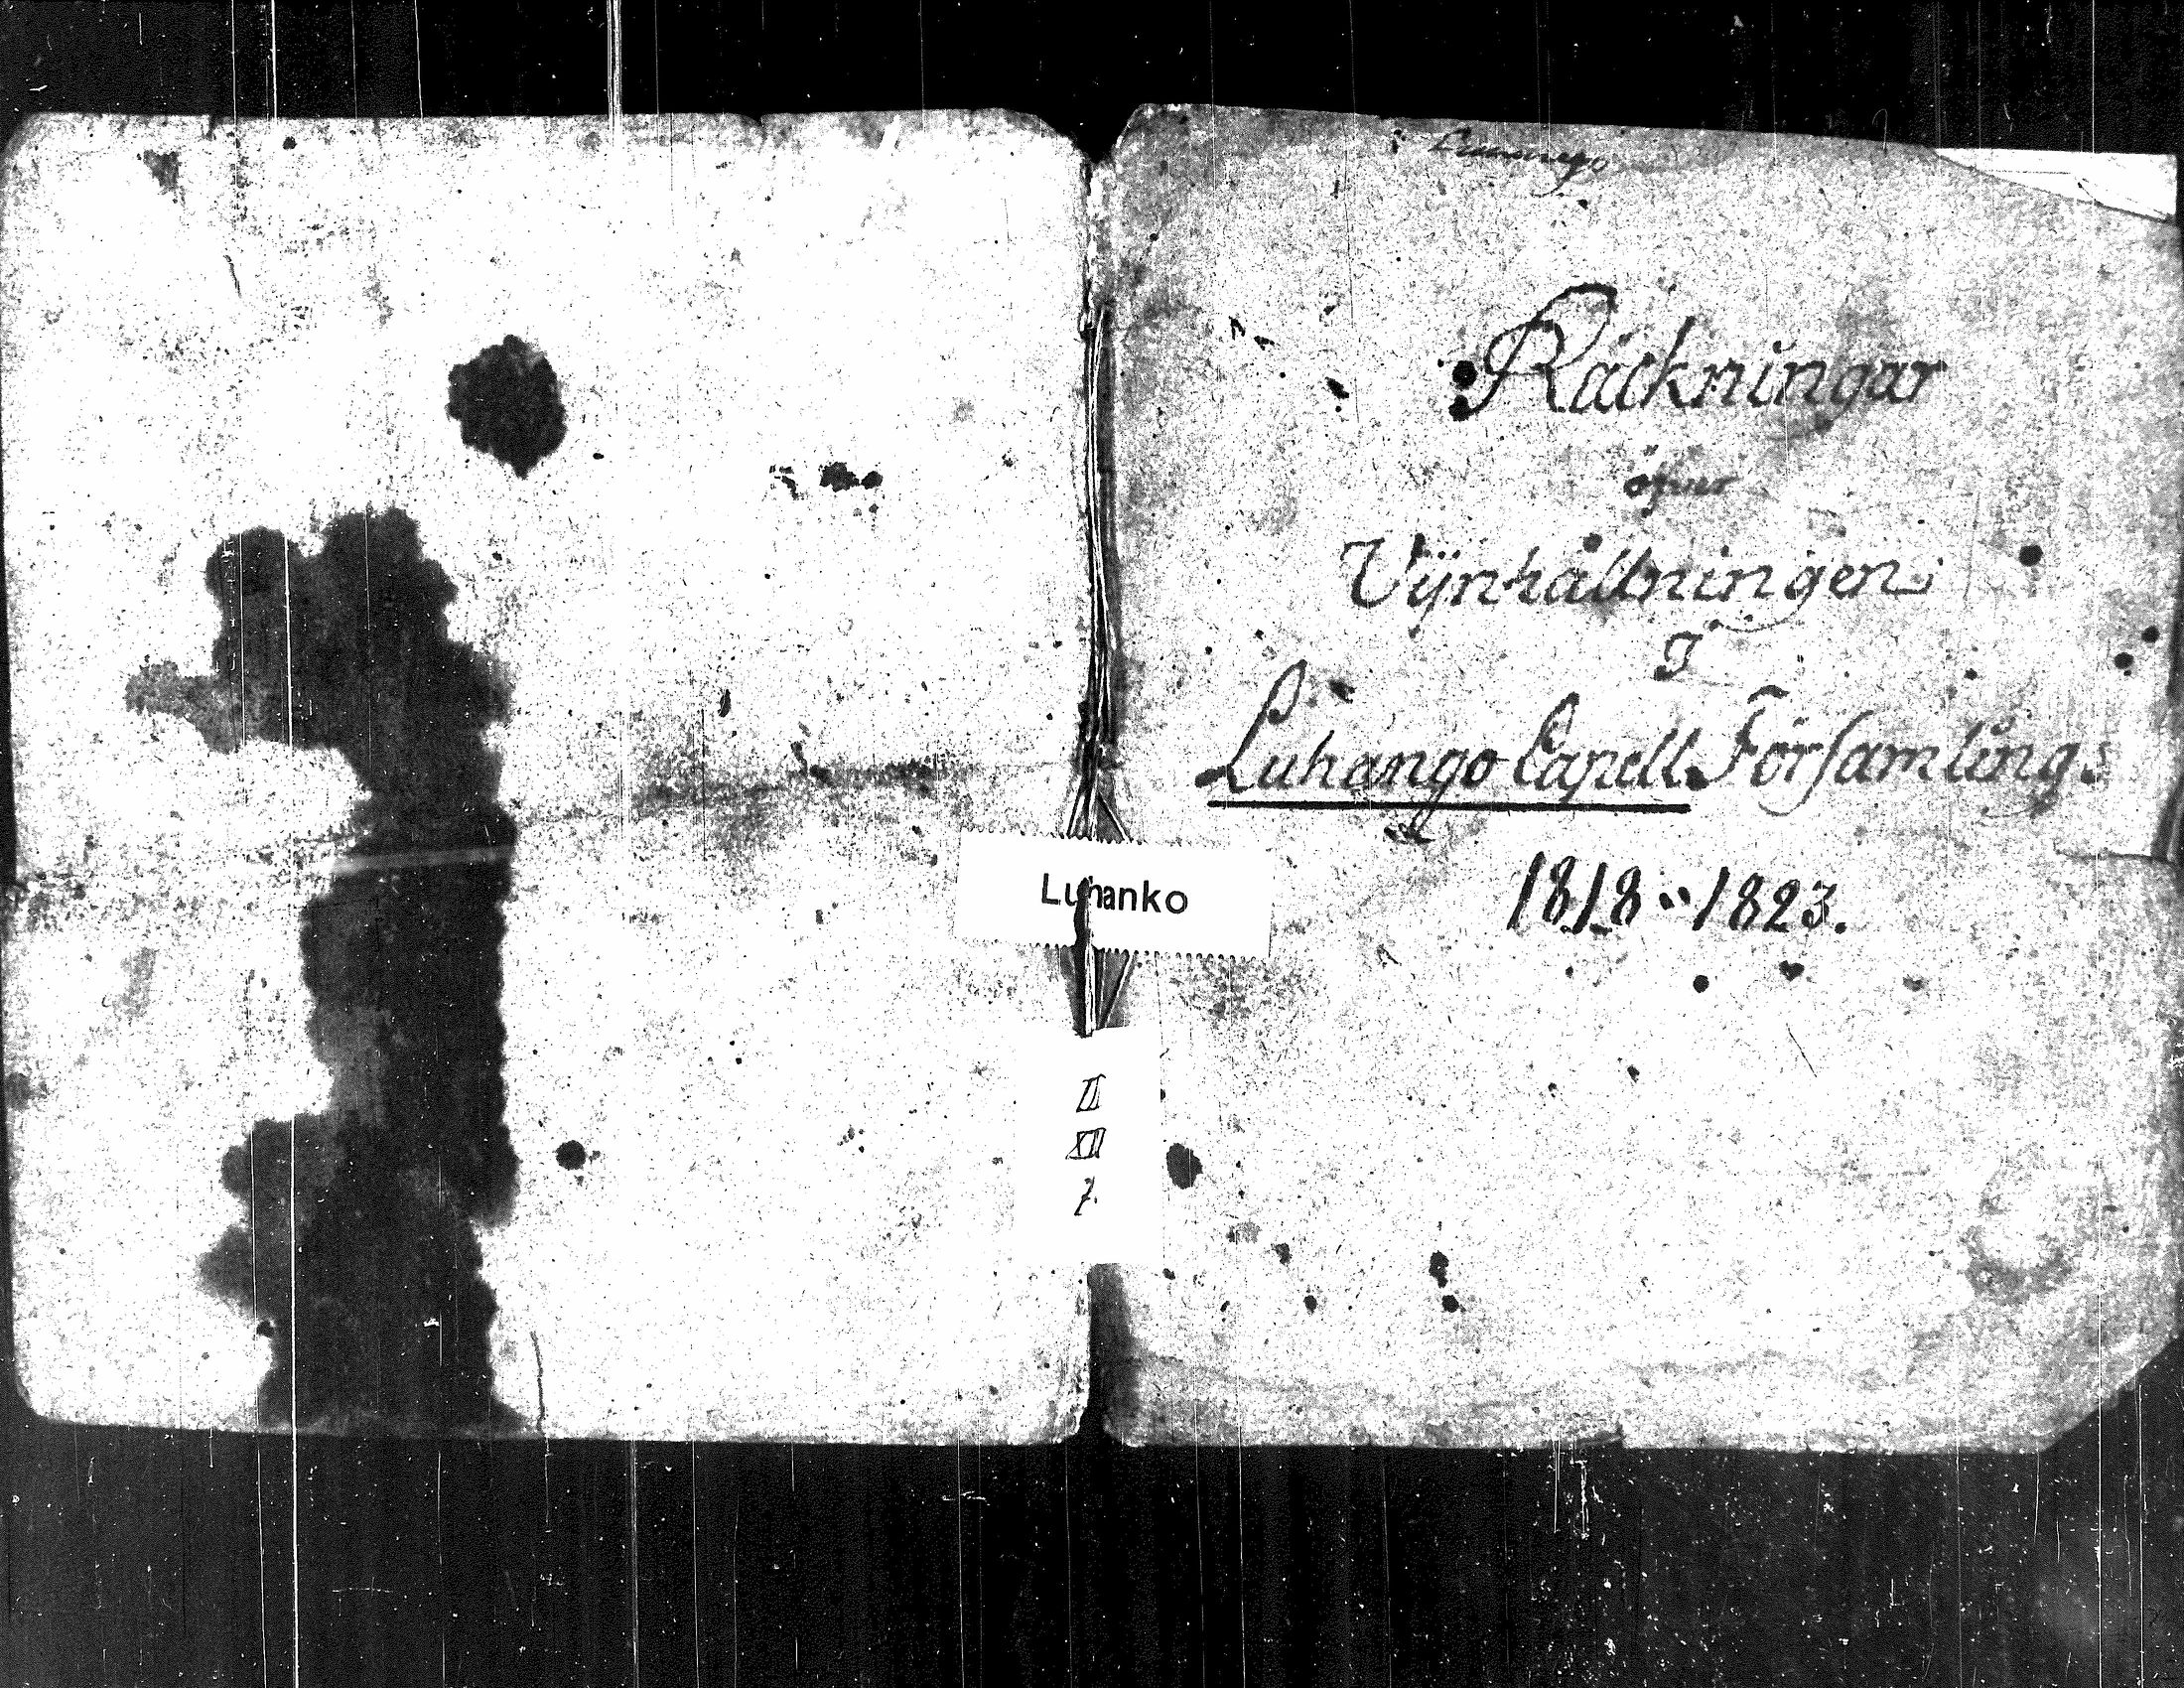 Räckningar
öfver
Vijnhållningen
I
Luhango Capell. Församling.
1818 " 1823.
Luhanko
II
XII
7.